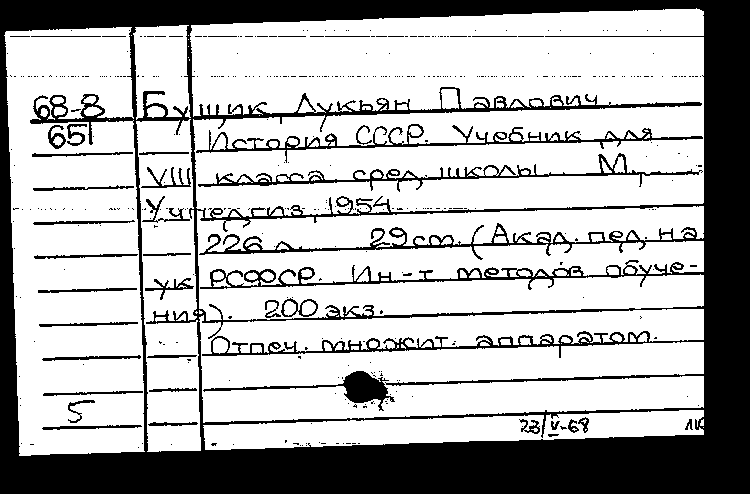 68-8 Бущик, Лукьян Павлович.
651 История СССР. Учебник для
VIII класса сред. школы. М.,
Учпедгиз, 1954.
226 л. 29 cm. (Акад. пед. на
ук РСФСР. Ин-т методов обуче-
ния). 200 экз.
Отпеч. множит. аппаратом.
5
23/V-68